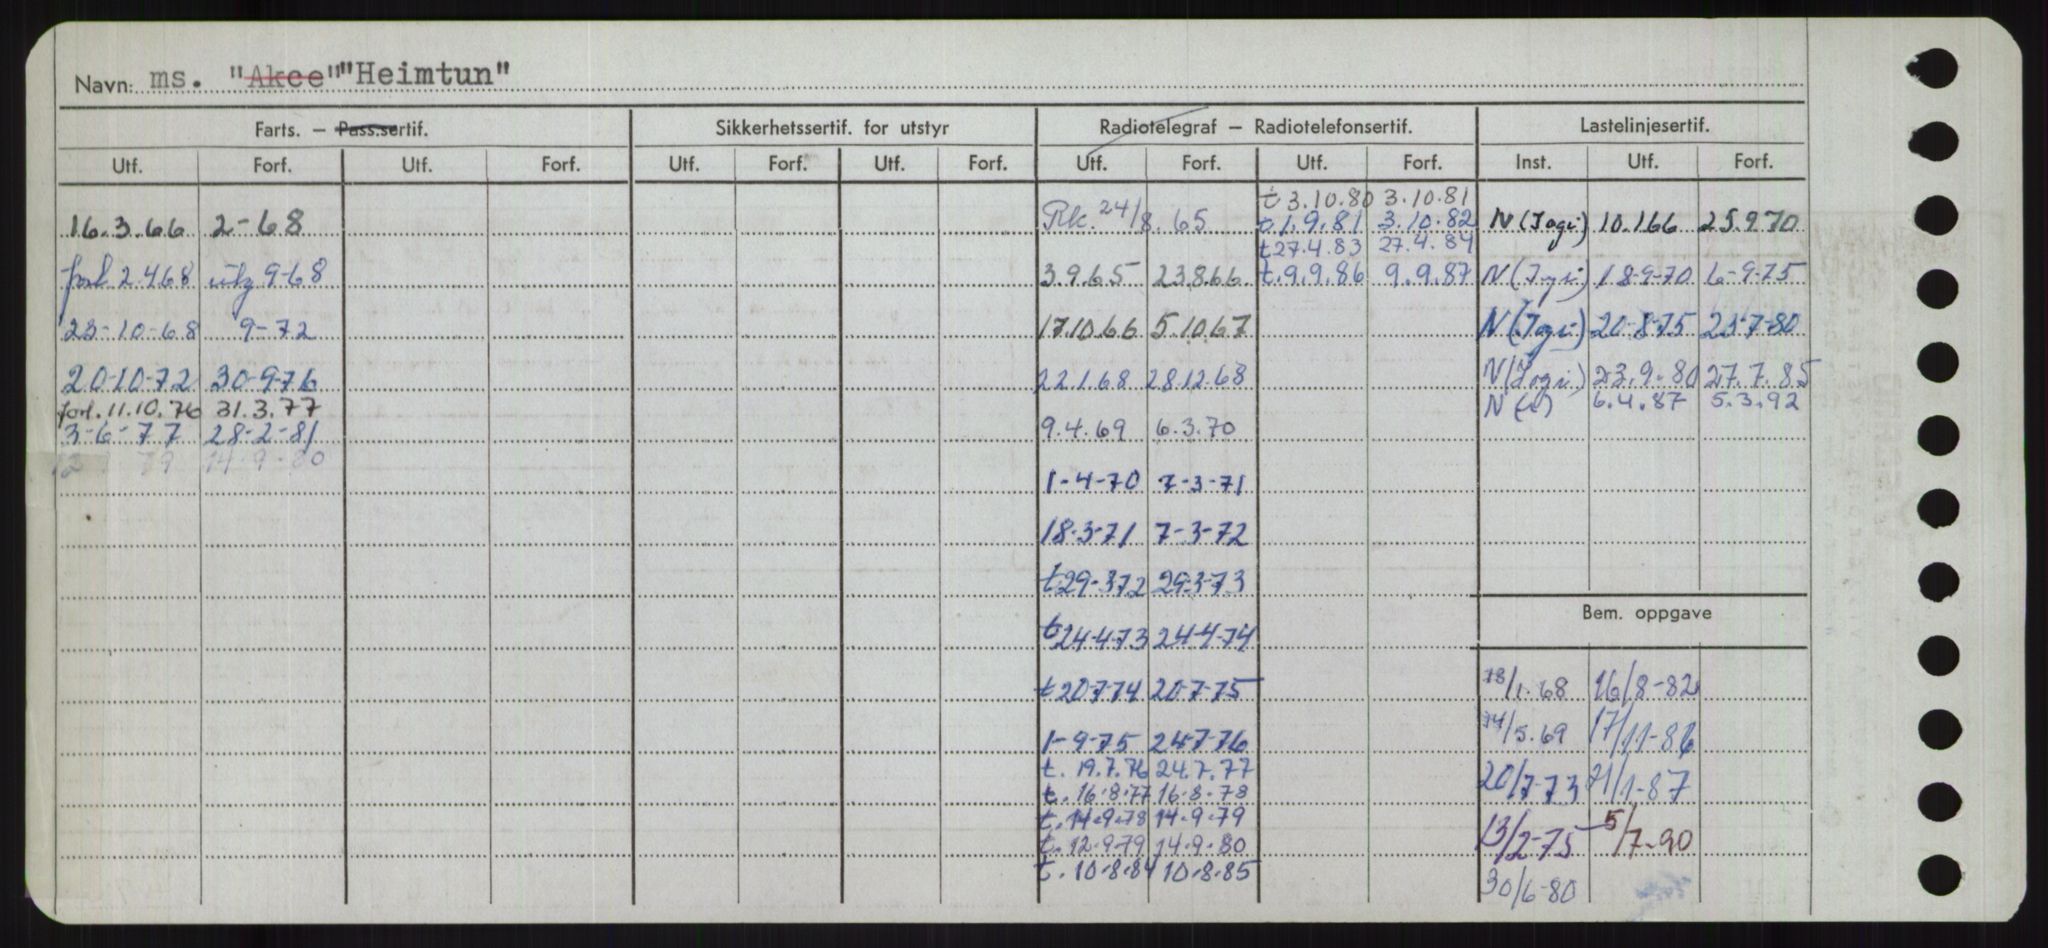 Navn: ms. "Akce" "Heimtun"
Farts. — Pass.sertif. Sikkerhetssertif. for utstyr Radiotelegraf — Radiotelefonsertif. Lastelinjesertif.
Utf. Forf. Utf. Forf. Utf. Forf. Utf. Forf. Utf. Forf. Utf. Forf. Inst. Utf. Forf.
t 3.10.80 3.10.81
16.3.66 2-68 Rk. 24/8.65 t.1.9.81 3.10.82 N (Jogi) 10.166 25.9.70
t27.4.83 27.4.84
forl 2.4.68 utg 9-68 3.9.65 23.8.66 t.9.9.86 9.9.87 N (Jogi) 18-9-70 6-9-75
23-10-68 9-72 17.10.66 5.10.67 N (Jogi) 20-8-75 23-7-80
20-10-72 30-9-76 22.1.68 28.12.68 N (Jogi) 23.9.80 27.7.85
forl. 11.10.76 31.3.77 N 6.4.87 5.3.92
3-6-77 28-2-81 9.4.69 6.3.70
12 79 14-9-80
1-4-70 7-3-71
18-3-71 7-3-72
t29-372 29-3-73
Bem. oppgave
t24-4-73 24-4-74
t20-7-74 20-7-75 18/1.68 16/8-82
1-9-75 24-7-76 14/5.69 17/11-86
t. 19.7.76 24.7.77
t. 16.8.77 16-8-78 20/7-73 21/1-87
t. 14.9.78 14.9.79
t. 12.9.79 14.9.80 13/2-75 5/7-90
t. 10.8.84 10.8.85
30/6-80